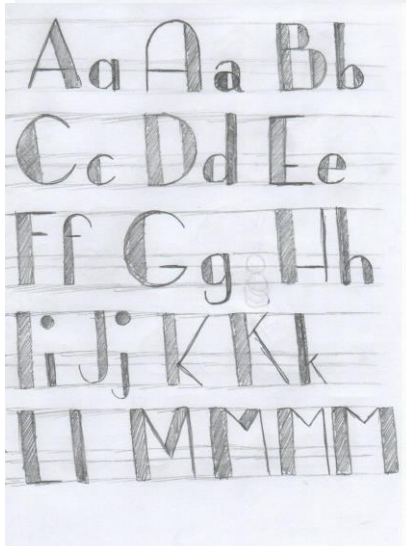 Aa Aa Bb
Cc Dd Ee
Ff Gg Hh
Ii Jj K Kk
Ll M M M M